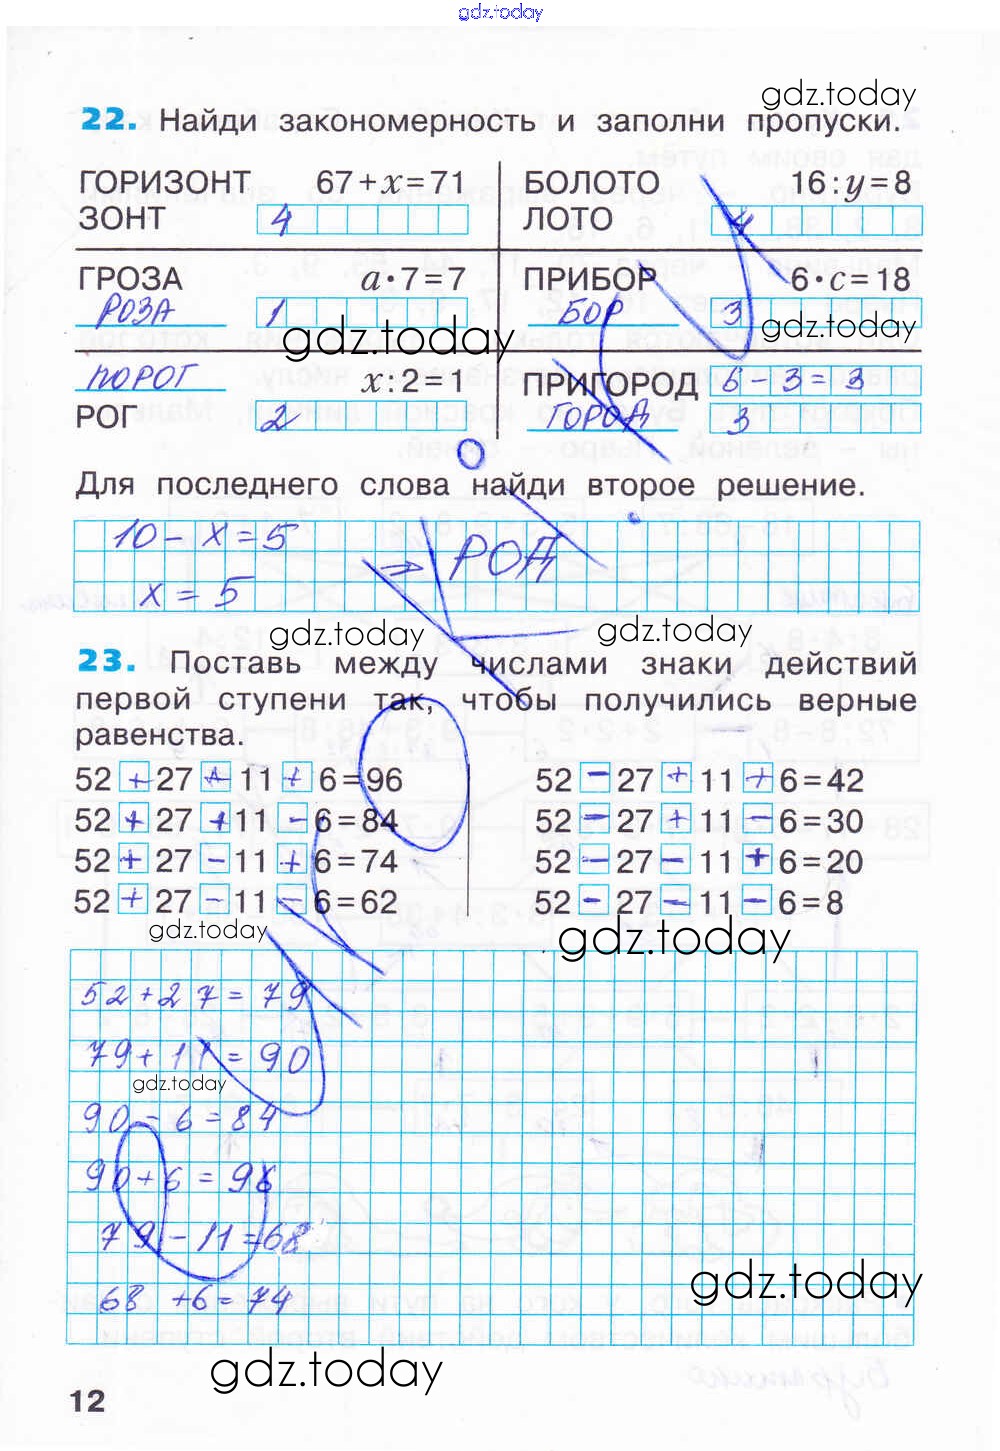 gdz.today
gdz.today
22. Найди закономерность и заполни пропуски.
ГОРИЗОНТ 67+x=71
ЗОНТ 4
БОЛОТО 16:y=8
ЛОТО
ГРОЗА a·7=7
РОЗА 1
ПРИБОР 6·c=18
БОР 3
gdz.today
gdz.today
ПОРОГ x:2=1
РОГ 2
ПРИГОРОД 6-3=3
ГОРОД 3
Для последнего слова найди второе решение.
10-x=5
РОД
x=5
gdz.today
gdz.today
23. Поставь между числами знаки действий
первой ступени так, чтобы получились верные
равенства.
52+27+11+6=96
52+27+11-6=84
52+27-11+6=74
52+27-11-6=62
52-27+11+6=42
52-27+11-6=30
52-27-11+6=20
52-27-11-6=8
gdz.today
gdz.today
52+27=79
79+11=90
gdz.today
90-6=84
90+6=96
79-11=68
68+6=74
gdz.today
gdz.today
12